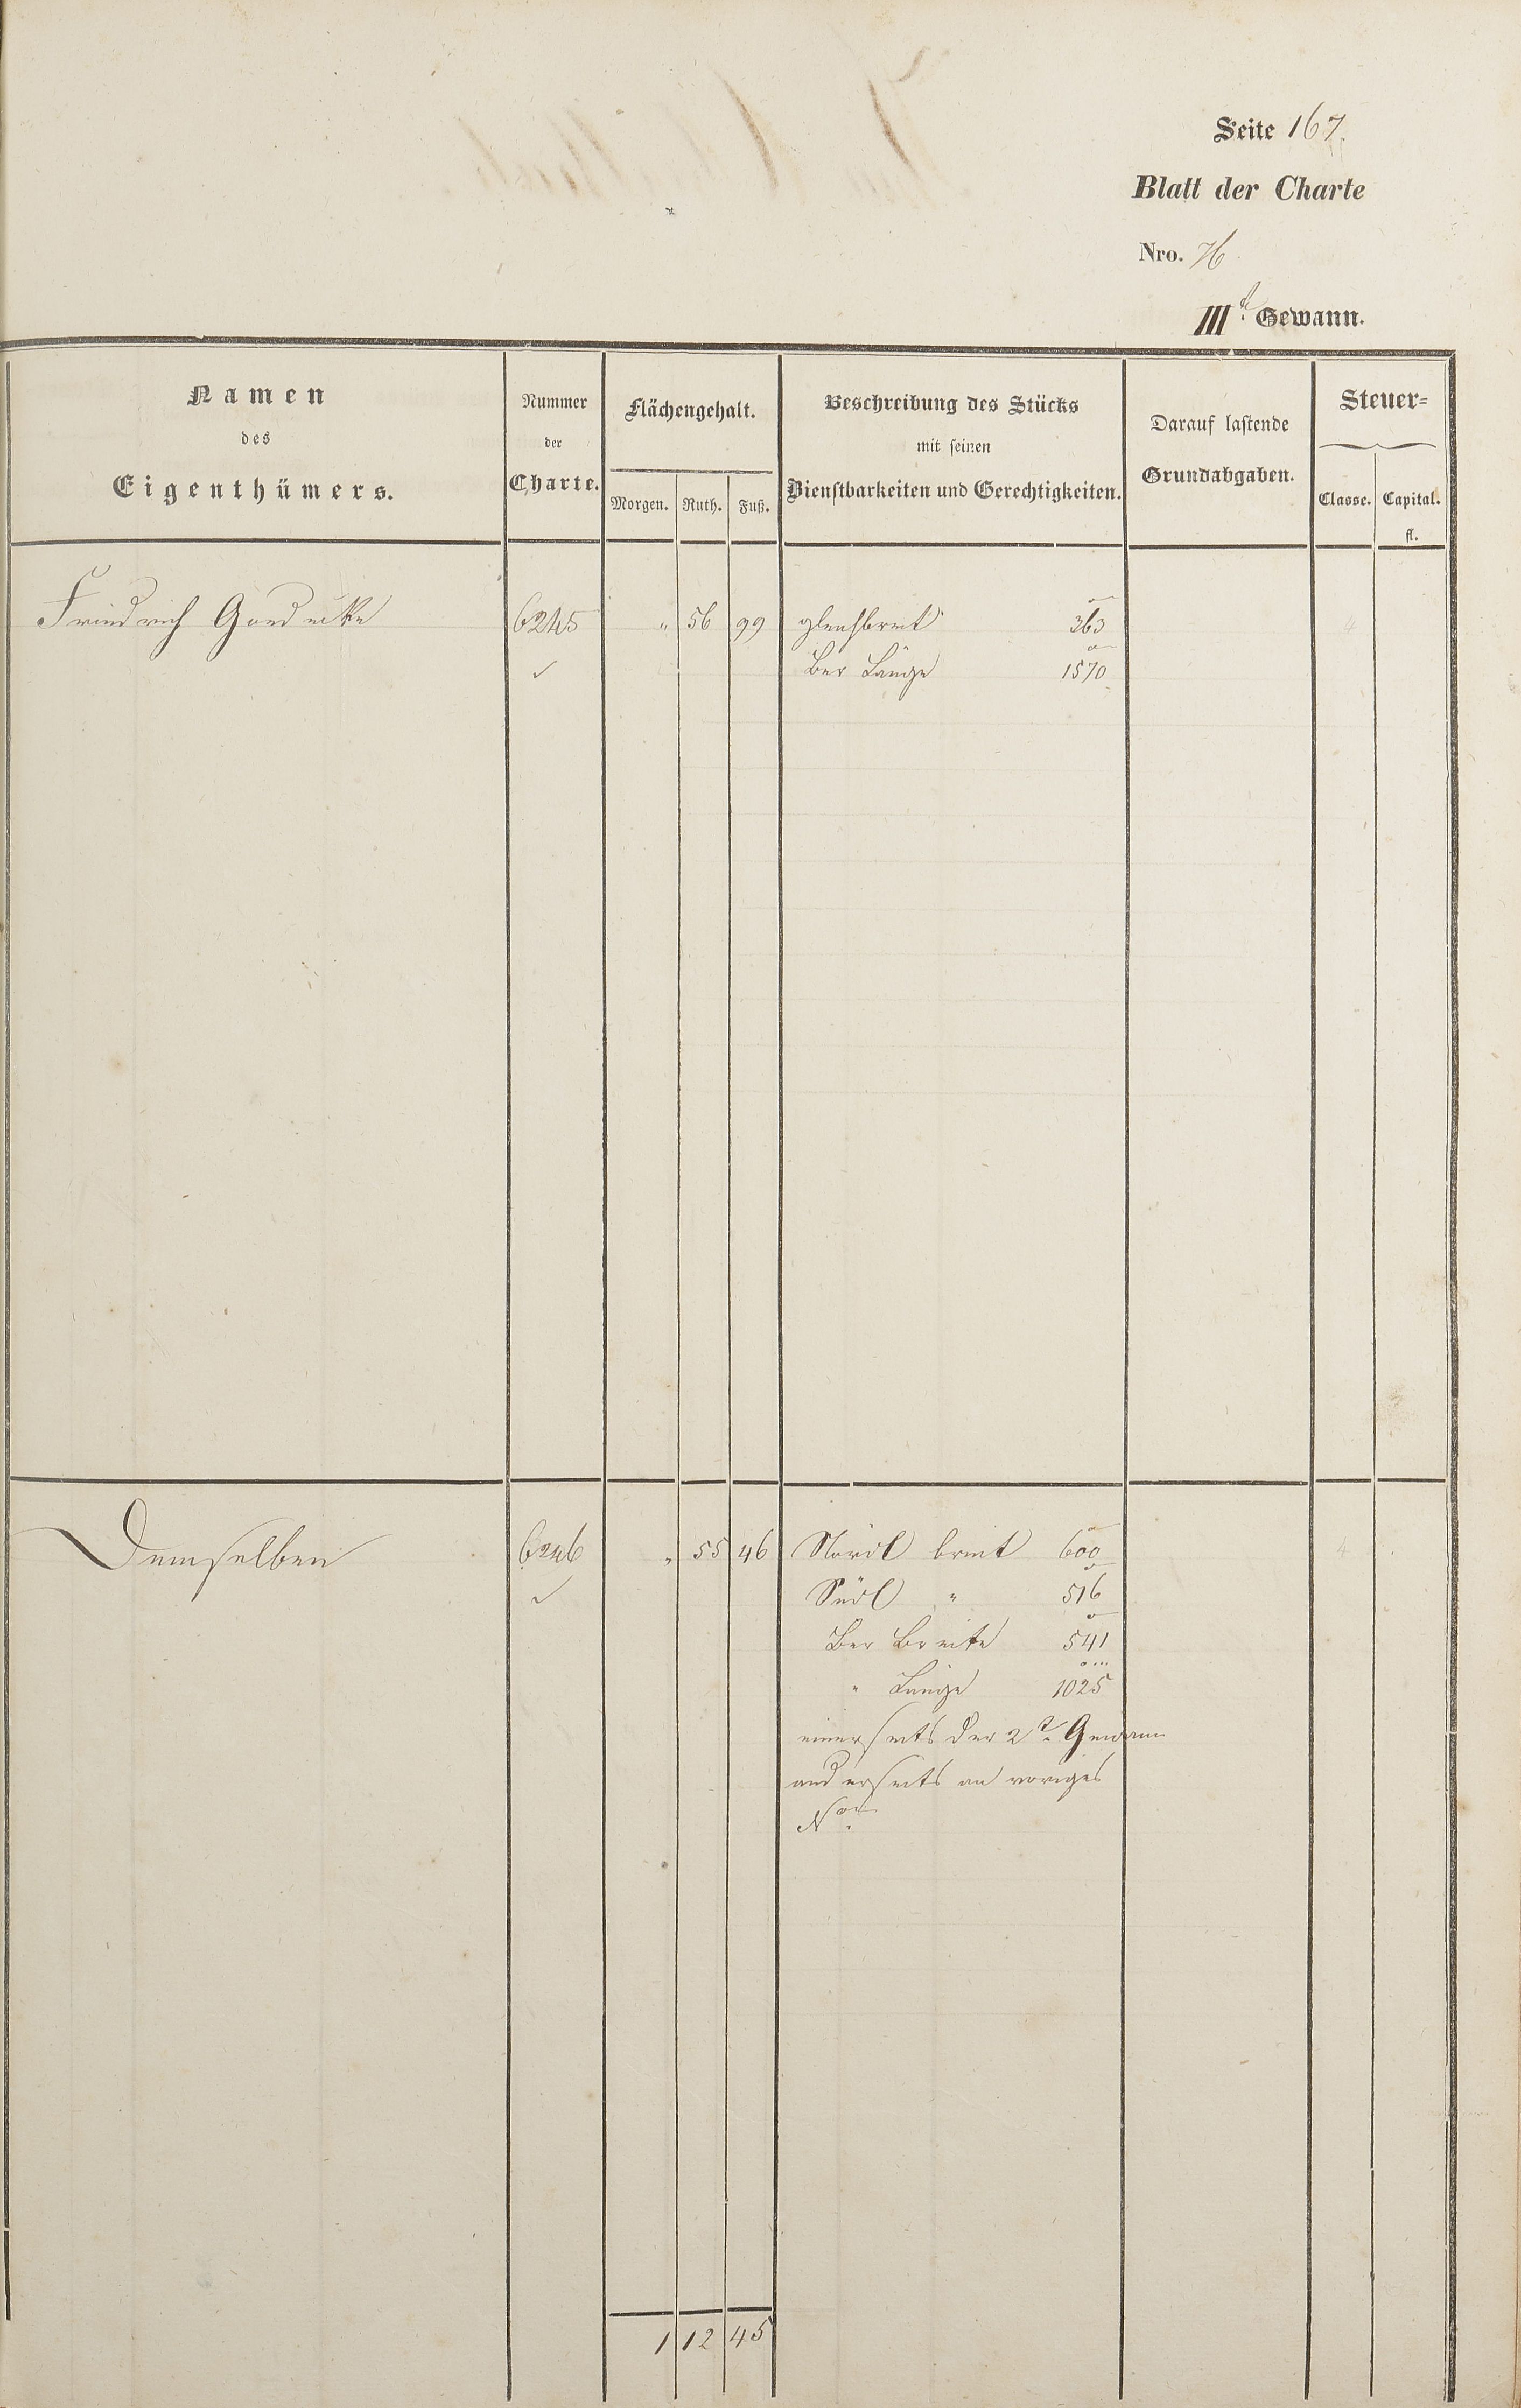 Seite 167.
Blatt der Charte
Nro. 76.
III.te Gewann.
Namen
des
Eigenthümers.
Nummer
der
Charte.
Flächengehalt.
Morgen. Ruth. Fuß.
Beschreibung des Stücks
mit seinen
Dienstbarkeiten und Gerechtigkeiten.
Darauf lastende
Grundabgaben.
Steuer=
Classe. Capital.
fl.
Friedrich Goedecke 6245 " 56 99 gleichbreit 363 4
✓ Ber Länge 1570
Demselben 6246 " 55 46 Nördl breit 600 4
✓ Südl " 516
Ber Breite 541
" Länge 1025
einerseits der 2t. Gewann
anderseits an voriges
No.
1 12 45